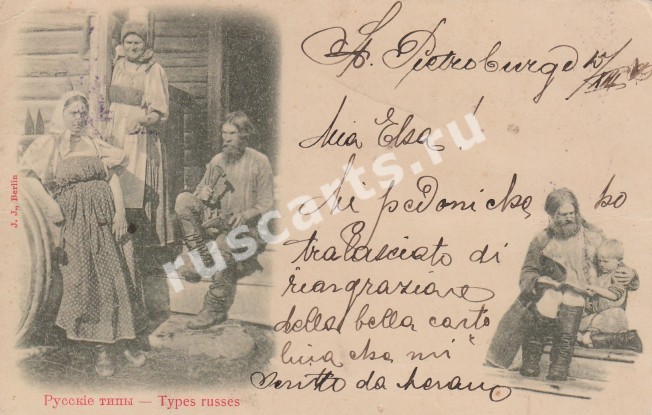 St. Pietroburgo 15/
Mia Elsa!
mi pedoni che ho
tralasciato di
ringraziare
della bella carto
lina che mi
scritto da Merano
J. J., Berlin
Русскіе типы — Types russes
ruscarts.ru